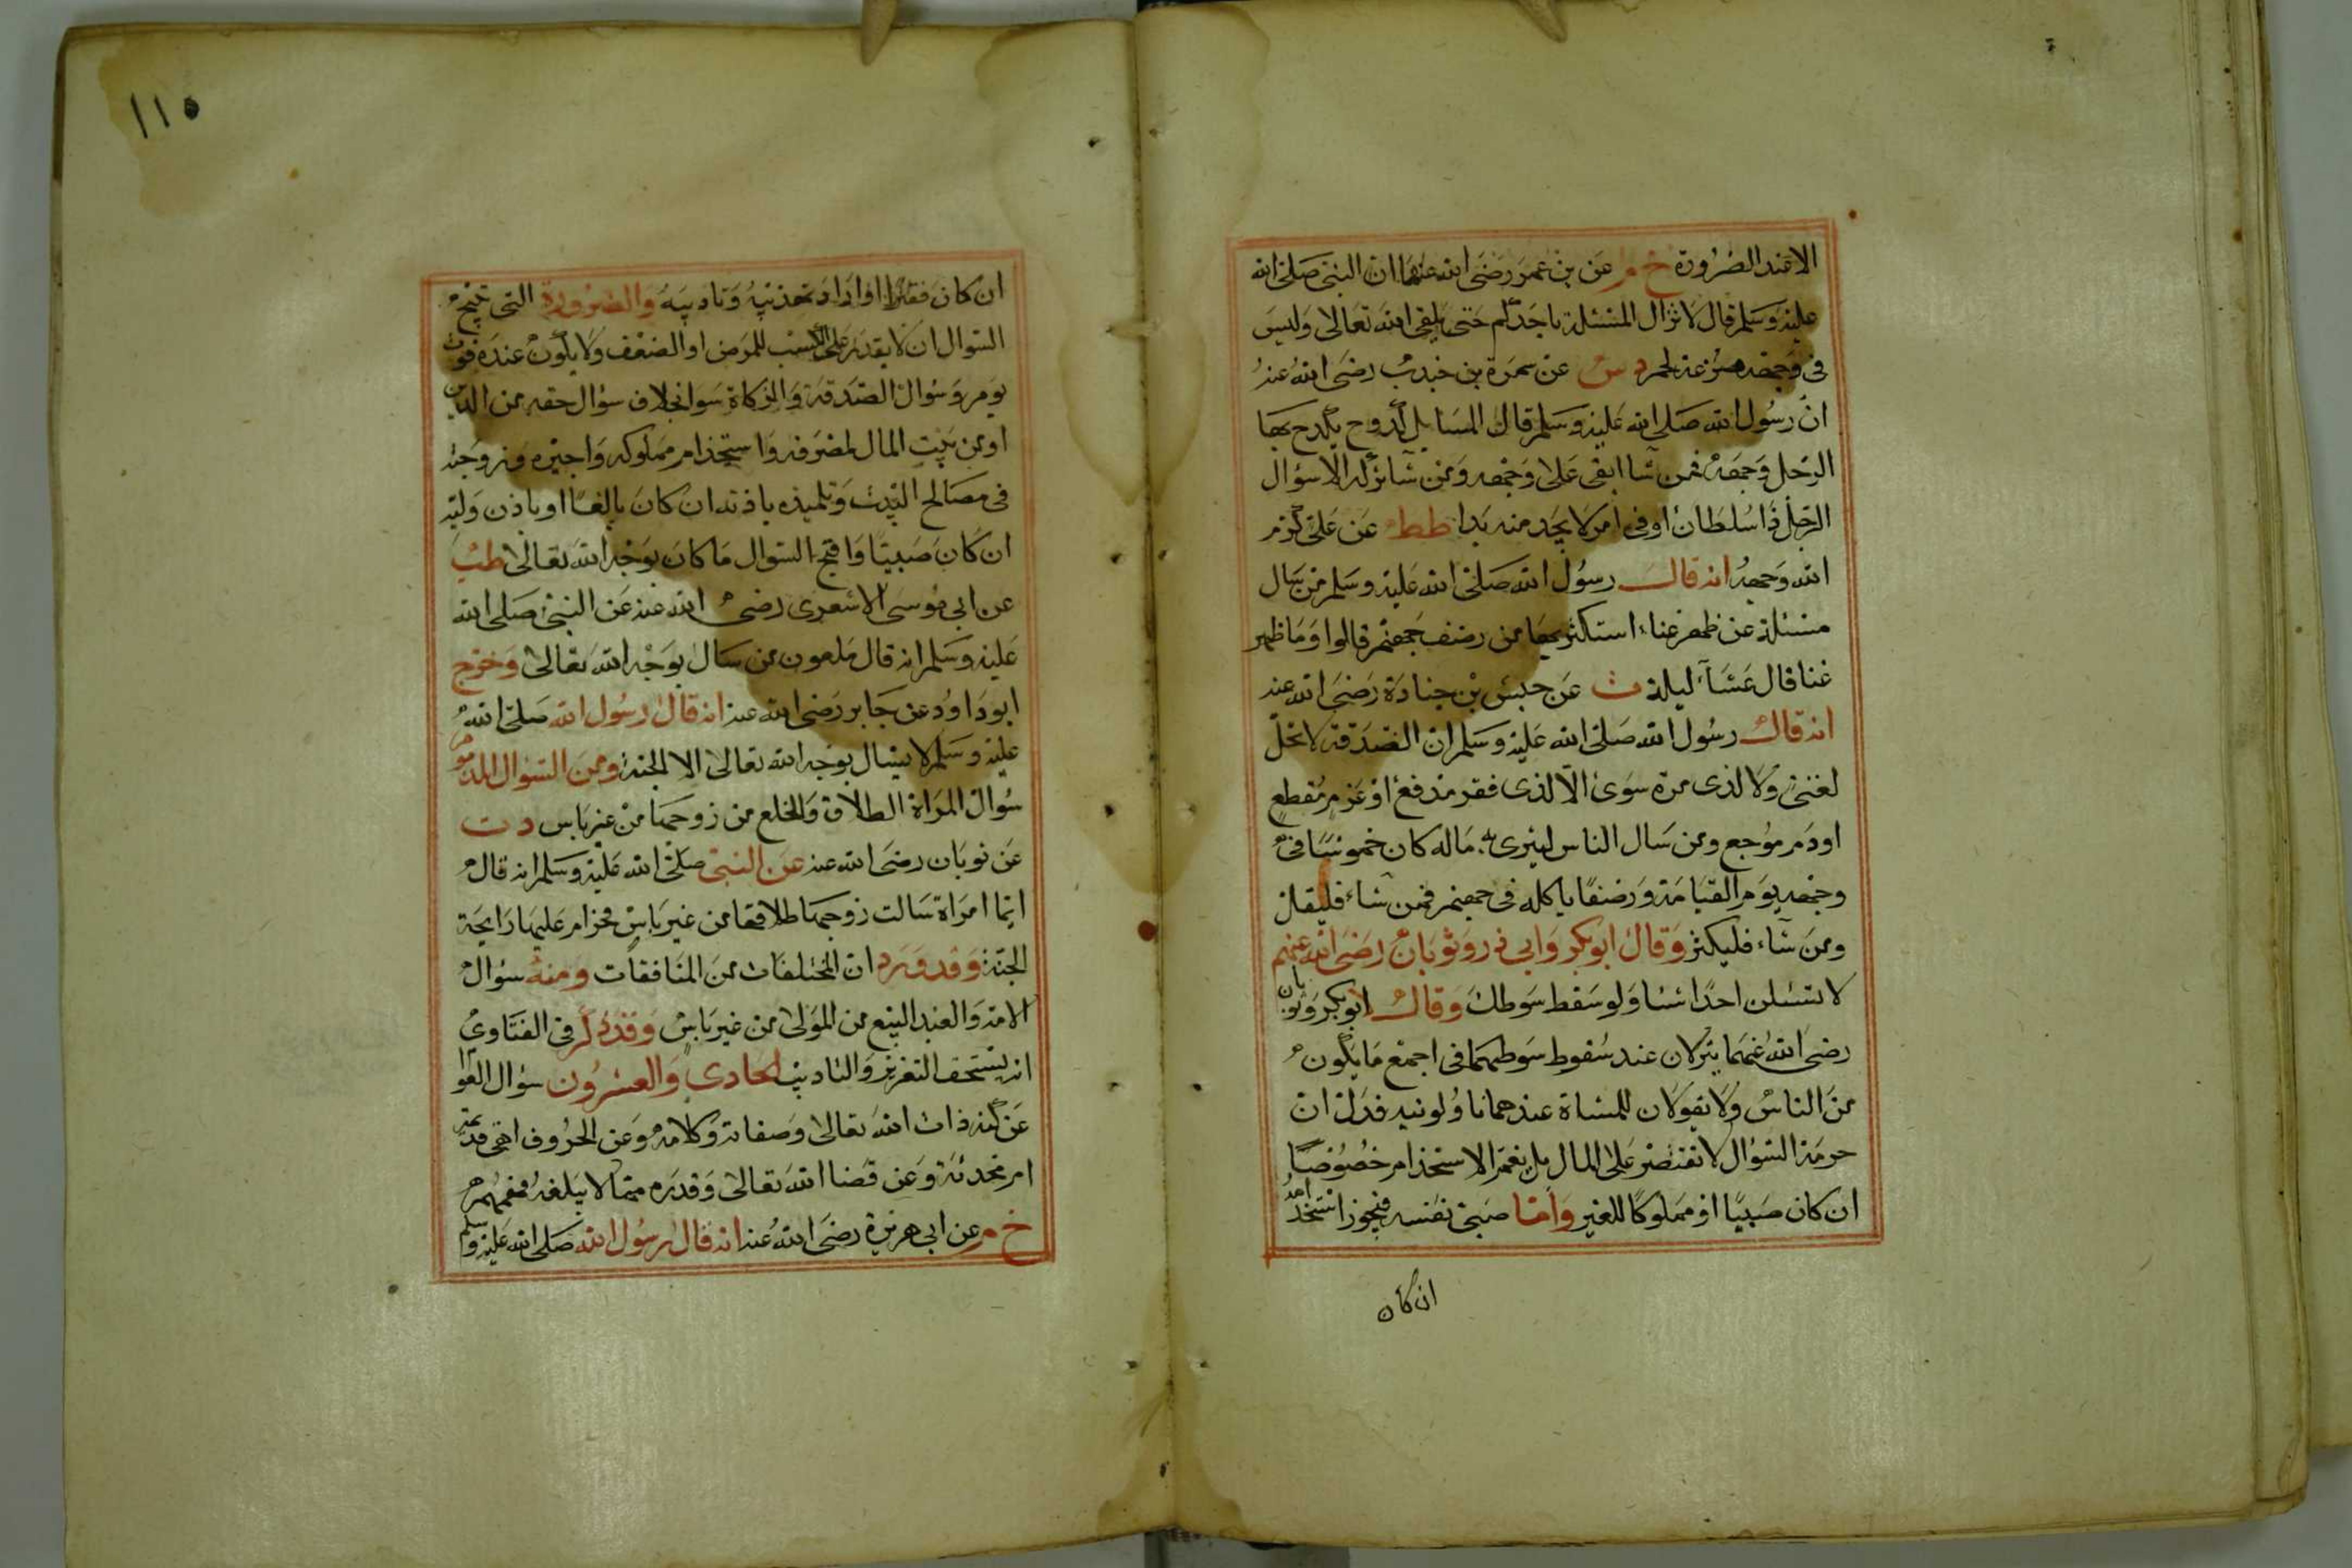 الا عند الضرورة خ م عن بن عمر رضى الله عنهما ان النبى صلى الله
عليه وسلم قال لا تزال المسئلة باحدكم حتى يلقى الله تعالى وليس
فى وجهه مزعة لحم د س عن سمرة بن جندب رضى الله عنه
ان رسول الله صلى الله عليه وسلم قال المسايل كدوح يكدح بها
الرجل وجهه فمن شا ابقى على وجهه ومن شا تركه الا سؤال
الرجل ذا سلطان او فى امر لا يجد منه بدا طط عن على كرم
الله وجهه انه قال رسول الله صلى الله عليه وسلم من سال
مسئلة عن ظهر غناء استكثر بها من رضف جهنم قالوا وما ظهر
غنا قال عشآ ليلة ت عن حبش بن جنادة رضى الله عنه
انه قال رسول الله صلى الله عليه وسلم ان الصدقة لا تحل
لغنى ولا لذى مرة سوى الا لذى فقر مدفع او غرم مقطع
او دم موجع ومن سال الناس ليثرى به ماله كان خموشا فى
وجهه يوم القيامة ورضفا ياكله فى جهنم فمن شاء فليقلل
ومن شاء فليكثر وقال ابو بكر وابى ذر وثوبان رضى الله عنهم
لا تسئلن احدا شئا ولو سقط سوطك وقال ابو بكر وثوبان
رضى الله عنهما ينزلان عند سقوط سوطهما فى اجمع ما يكون
من الناس ولا يقولان للمشاة عندهما ناولونيه فدل ان
حرمة السؤال لا تقتصر على المال بل يعم الاستخدام خصوصا
ان كان صبيا او مملوكا للغير واما صبى نفسه فيجوز استخدامه
ان كان
١١٥
ان كان فقيرا او اراد تهذيبه وتاديبه والضرورة التى تبيح
السوال ان لا يقدر على الكسب للمرض او الضعف ولا يكون عنده قوت
يوم وسؤال الصدقة والزكاة سوا بخلاف سؤال حقه من الدين
او من بيت المال لمصرفه واستخدام مملوكه واجيره وزوجته
فى مصالح البيت وتلميذه باذنه ان كان بالغا او باذن وليه
ان كان صبيا واقبح السوال ما كان بوجه الله تعالى طب
عن ابى موسى الاشعرى رضى الله عنه عن النبى صلى الله
عليه وسلم انه قال ملعون من سال بوجه الله تعالى وخرج
ابو داود عن جابر رضى الله عنه انه قال رسول الله صلى الله
عليه وسلم لا يسال بوجه الله تعالى الا الجنة ومن السؤال المذموم
سؤال المراة الطلاق والخلع من زوجها من غير باس د ت
عن ثوبان رضى الله عنه عن النبى صلى الله عليه وسلم انه قال
ايما امراة سالت زوجها طلاقها من غير باس فحرام عليها رايحة
الجنة وقد ورد ان المختلفات من المنافقات ومنه سؤال
الامة والعبد البيع من المولى من غير باس وقد ذكر فى الفتاوى
انه يستحق التعزيز والتاديب الحادى والعشرون سؤال العوام
عن كنه ذات الله تعالى وصفاته وكلامه وعن الحروف اهى قديمة
ام محدثة وعن قضا الله تعالى وقدره مما لا يبلغه فهمهم
خ م عن ابى هريرة رضى الله عنه انه قال رسول الله صلى الله عليه وسلم